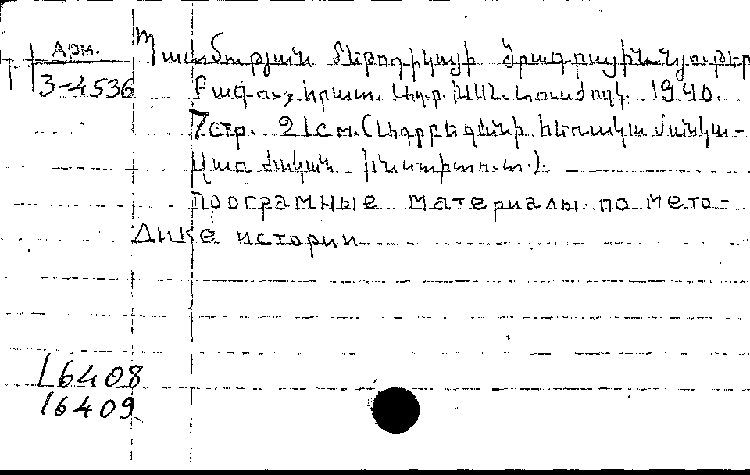 Арм.
3-4536
Պատմության մեթոդիկայի ծրագրային նյութեր
Բագու, հրատ. Ադր. ԽՍՀ Լուսժողկ. 1940.
7 стр. 21 см. (Ադրբեջանի հեռակա մանկա-
վարժական ինստիտուտ).
Програмные материалы по мето-
дике истории
16408
16409